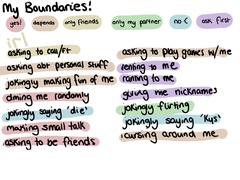 My Boundaries!
yes! depends only friends only my partner no :( ask first
irl
asking to call/FT
asking abt personal stuff
jokingly making fun of me
dming me randomly
jokingly saying 'die'
making small talk
asking to be friends
asking to play games w/me
venting to me
ranting to me
giving me nicknames
jokingly flirting
jokingly saying 'kys'
cursing around me